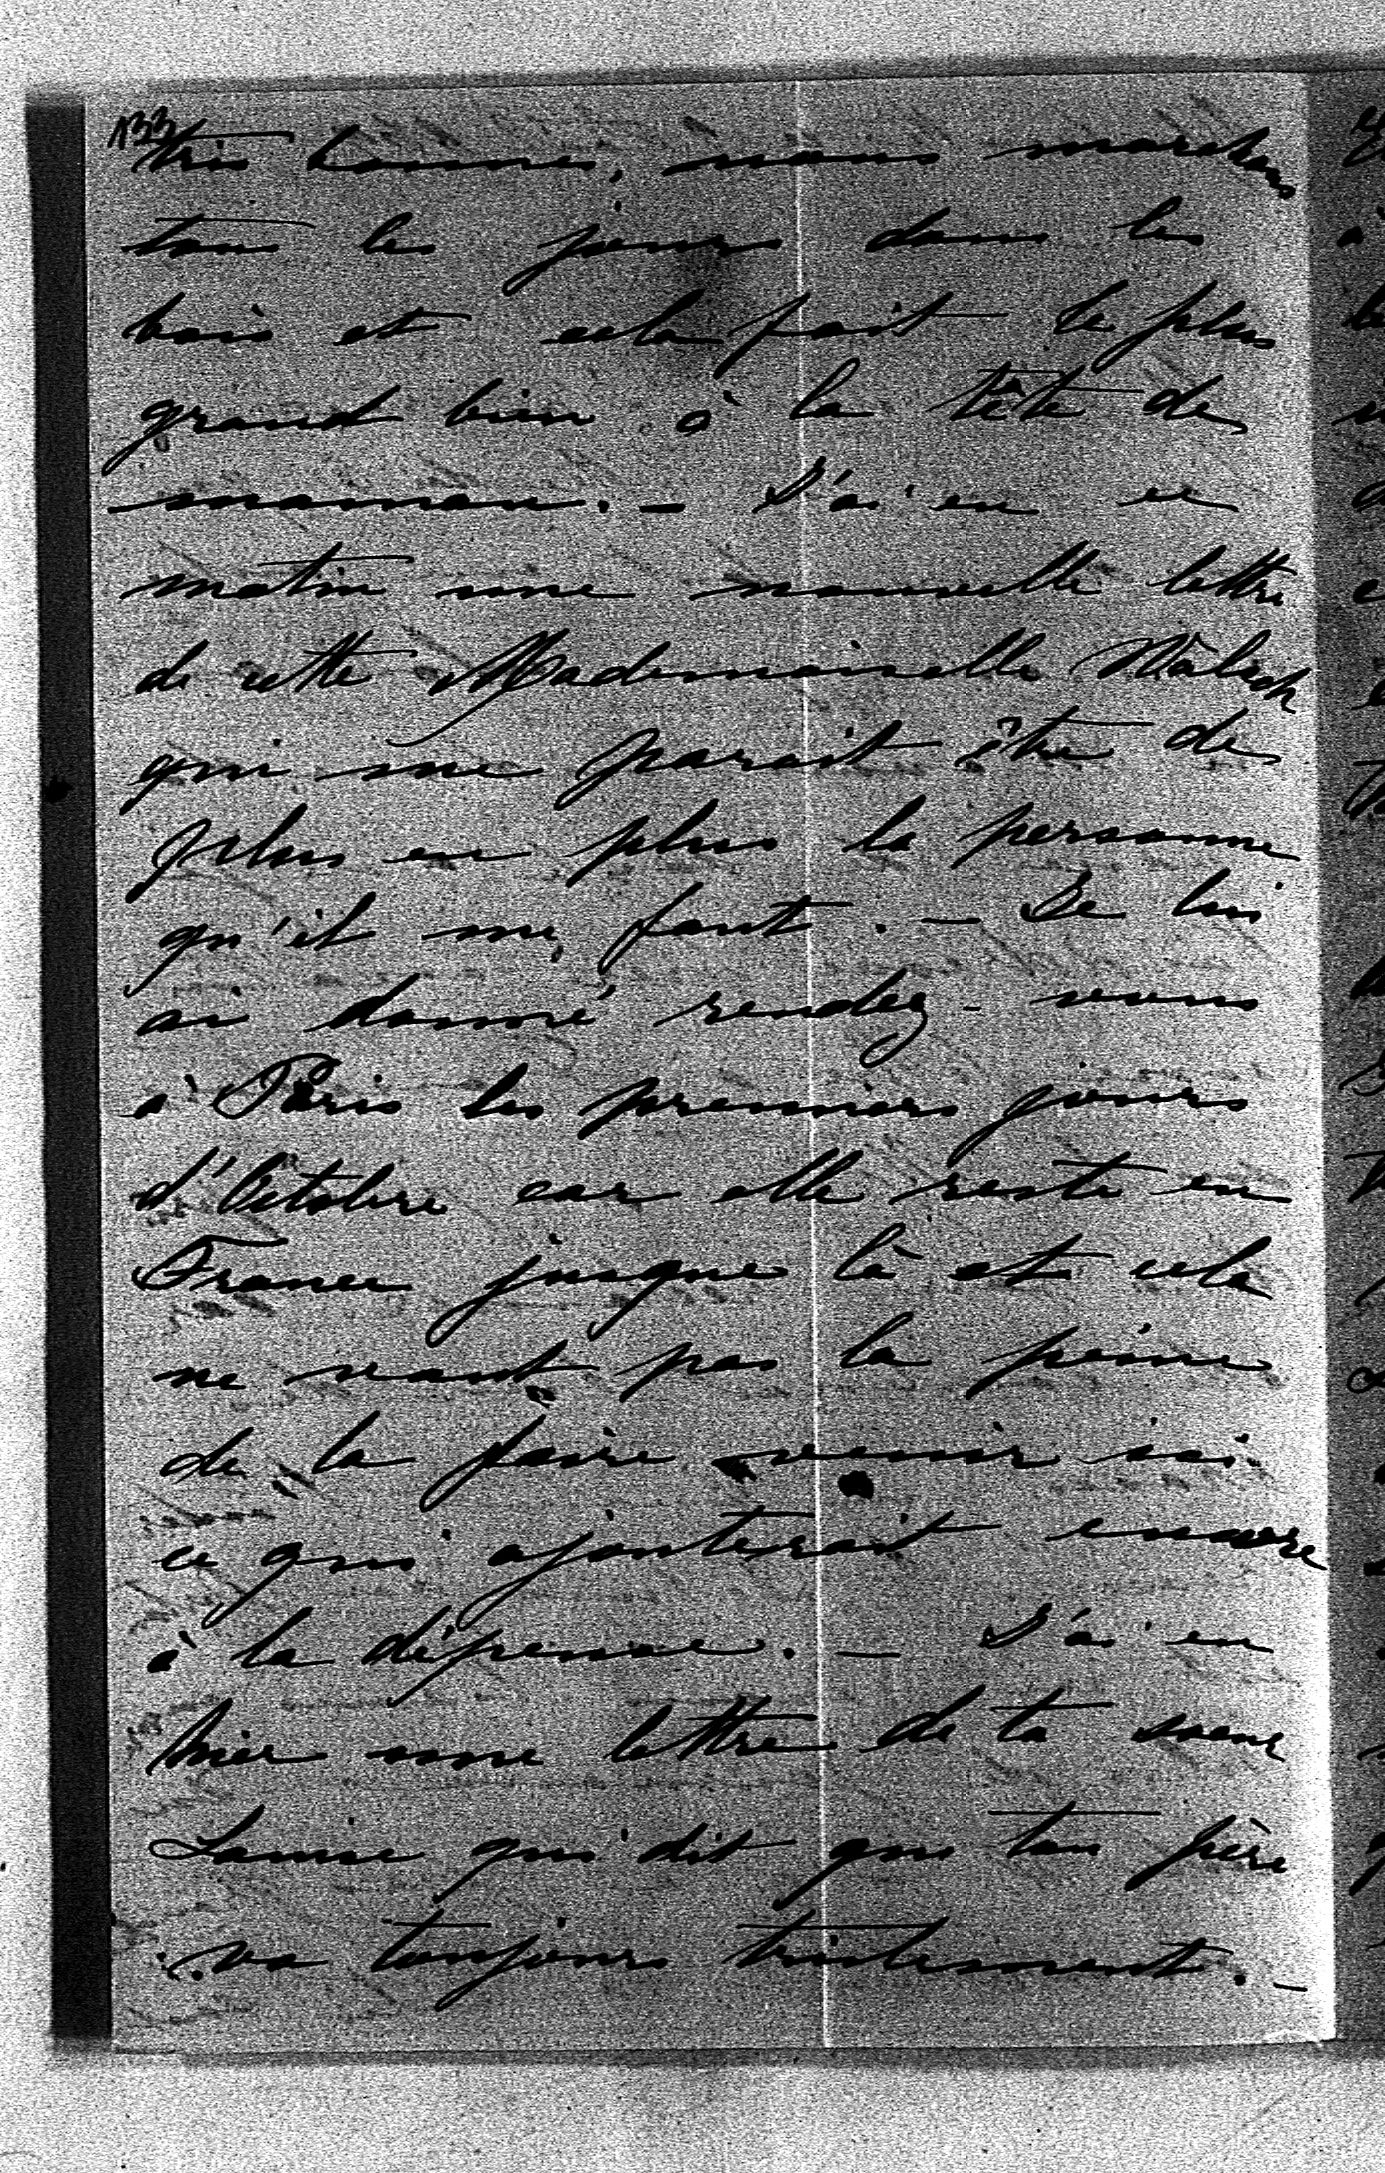 133
très bonnes, nous marchons
tous les jours dans les
bois et cela fait le plus
grand bien à la tête de
maman. — J'ai eu ce
matin une nouvelle lettre
de cette Mademoiselle
qui me parait être de
plus en plus la personne
qu'il me faut. — Je lui
ai donné rendez-vous
à Paris les premiers jours
d'Octobre car elle reste en
France jusque là et cela
ne vaut pas la peine
de la faire venir ici
ce qui ajouterait encore
à la dépense. — J'ai eu
hier une lettre de ta soeur
Louise qui dit que ton père
va toujours tristement. —